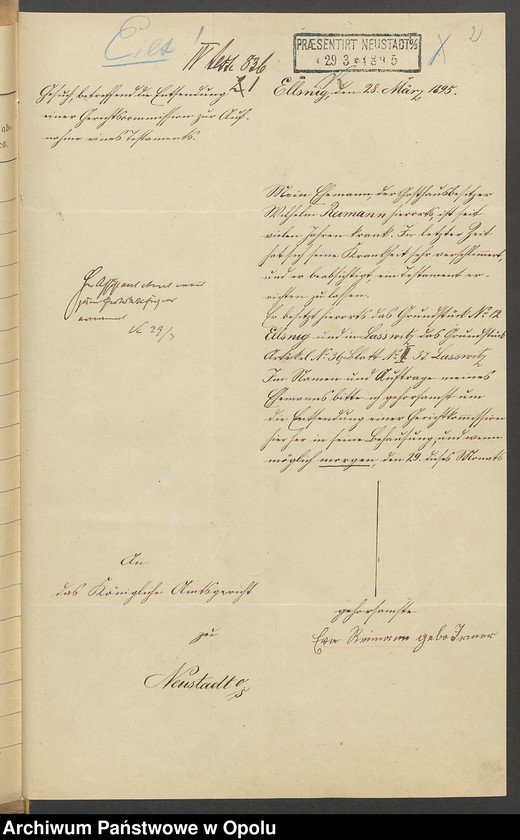 Eilt!
IV Test 826
2
PRÆSENTIRT NEUSTADT O/S
29 3 1895
Ellsnig, den 28. März 1895.
Gesuch, betreffend die Entsendung
einer Gerichtscommission zur Auf-
nahme eines Testaments.
Mein Ehemann, der Gasthausbesitzer
Wilhelm Reimann hierorts, ist seit
vielen Jahren krank. In letzter Zeit
hat sich seine Krankheit sehr verschlimmert,
und er beabsichtigt, ein Testament er-
richten zu lassen.
Er besitzt hierorts das Grundstück No 12
Ellsnig und in Lasswitz das Grundstück
Artikel No 36 Blatt No 37 Lasswitz
Im Namen und Auftrage meines
Ehemanns bitte ich gehorsamst um
die Entsendung einer Gerichtskommission
hierher in seine Behausung, und wenn
möglich morgen, den 29. dieses Monats
29/3
An
das Königliche Amtsgericht
zu
Neustadt O/S
gehorsamste
Eva Reimann geb. Irmer
Archiwum Państwowe w Opolu